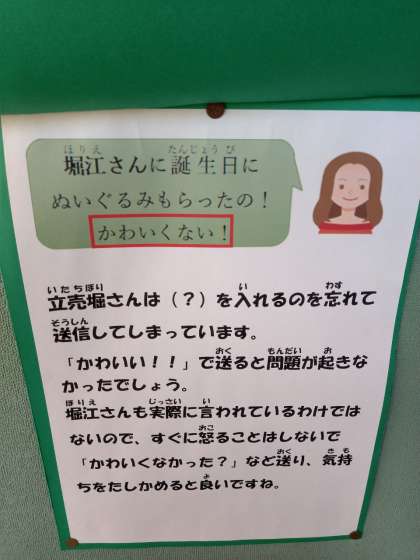 堀江さんに誕生日に
ぬいぐるみもらったの！
かわいくない！
立売堀さんは（？）を入れるのを忘れて
送信してしまっています。
「かわいい！！」で送ると問題が起きな
かったでしょう。
堀江さんも実際に言われているわけでは
ないので、すぐに怒ることはしないで
「かわいくなかった？」など送り、気持
ちをたしかめると良いですね。